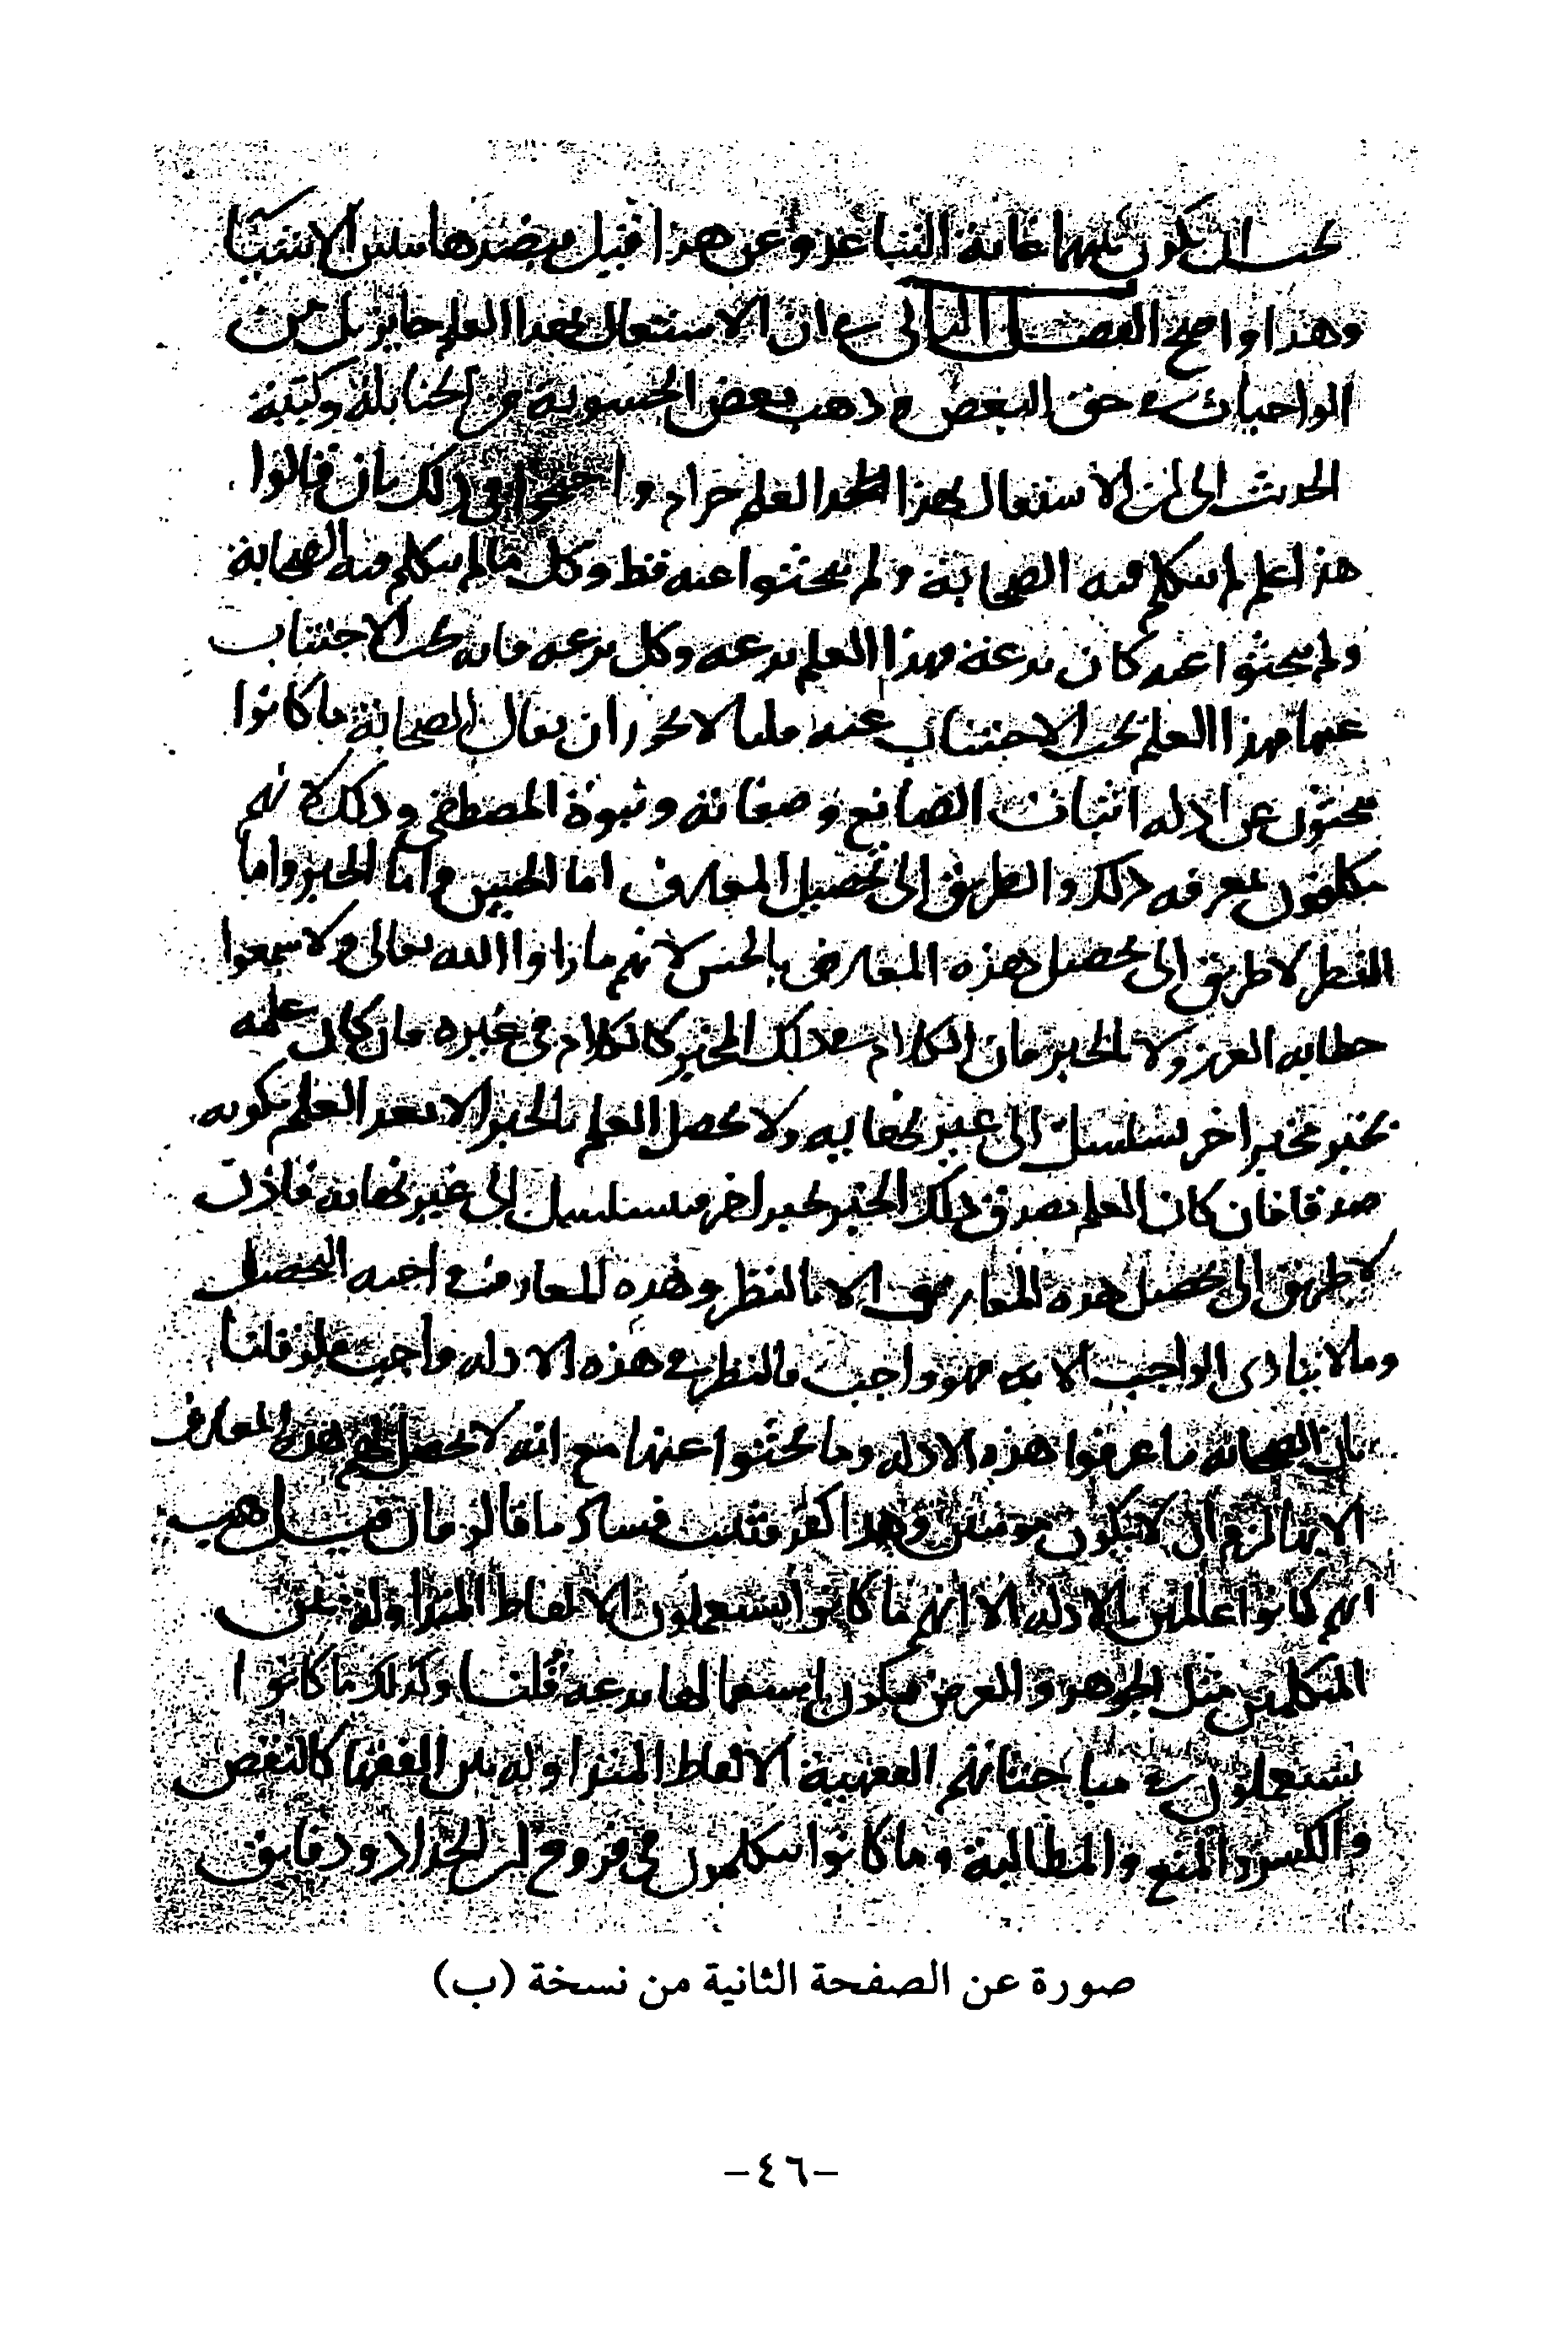 يجب ان يكون بينهما غاية التباعد وعن هذا قيل وبضدها تتبين الاشيا
وهذا واضح الفصل الثاني في ان الاشتغال بهذا العلم جايز بل من
الواجبات في حق البعض وذهب بعض الحشوية من الحنابلة وكتبة
الحديث الى ان الاشتغال بهذا العلم حرام واحتجوا في ذلك بان قالوا
هذا علم لم يتكلم فيه الصحابة ولم يبحثوا عنه قط وكل ما لم يتكلم فيه الصحابة
ولم يبحثوا عنه كان بدعة فهذا العلم بدعه وكل بدعه فانه يجب الاجتناب
عنها فهذا العلم يجب الاجتناب عنه قلنا لا يجوز ان يقال الصحابة ما كانوا
يبحثون عن ادله اثبات الصانع وصفاته ونبوة المصطفى وذلك لانهم
مكلفون بمعرفه ذلك والطريق الى تحصيل المعارف اما الحس واما الخبر واما
النظر لا طريق الى تحصيل هذه المعارف بالحس لانهم ما راوا الله تعالى ولا سمعوا
خطابه العزيز ولا بالخبر فان الكلام في ذلك المخبر كالكلام في غيره فان كان علمه
بخبر مخبر اخر تسلسل الى غير نهايه ولا يحصل العلم بالخبر الا بعد العلم بكونه
صدقا فان كان العلم بصدق ذلك الخبر بخبر اخر فيتسلسل الى غير نهايه فاذن
لا طريق الى تحصيل هذه المعارف الا بالنظر وهذه المعارف واجبه التحصيل
وما لا يتادى الواجب الا به فهو واجب فالنظر في هذه الادله واجب فلو قلنا
بان الصحابه ما عرفوا هذه الادله وما بحثوا عنها مع انه لا يحصل لهم هذه المعارف
الا بها لزم ان لا يكون مومنين وهذا كفر فثبت فساد ما قالو فان قيل هب
انهم كانوا عالمين بالادله الا انهم ما كانوا يستعملون الالفاظ المتداولة بين
المتكلمين مثل الجوهر والعرض فيكون استعمالها بدعة قلنا وكذلك ما كانوا
يستعملون في مباحثاتهم الفقهية الالفاظ المتداوله بين الفقها كالنقض
والكسر والمنع والمطالبة وما كانوا يتكلمون في فروع ابن الحداد ودقايق
صورة عن الصفحة الثانية من نسخة (ب)
-٤٦-